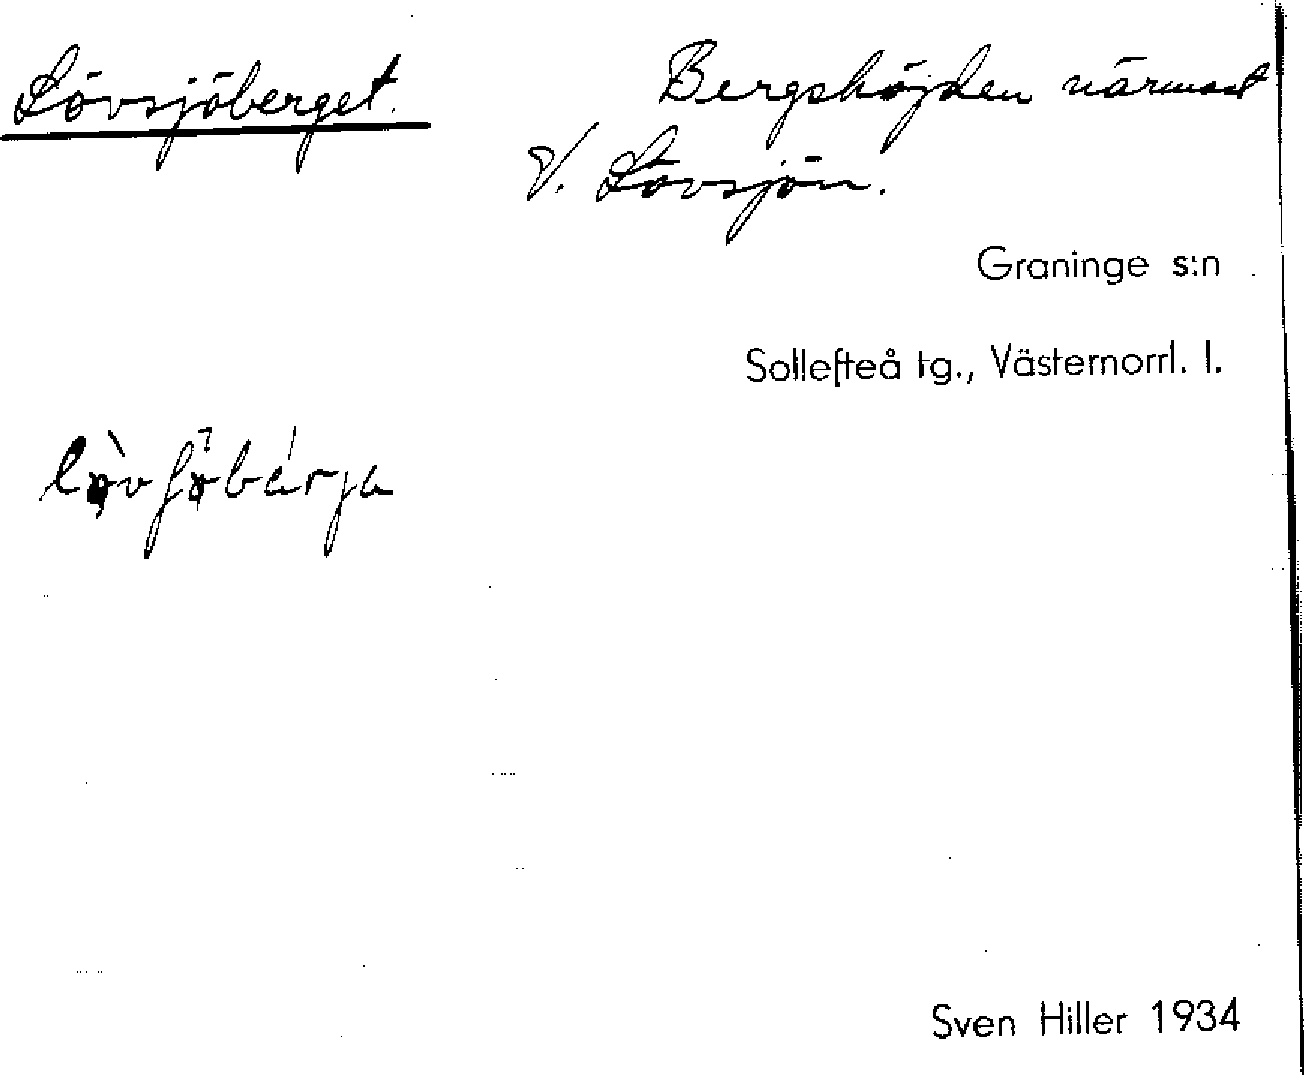 Lövsjöberget. Bergshöjden närmast
V. Lövsjön.
Graninge s:n
Sollefteå tg., Västernorrl. l.
Sven Hiller 1934